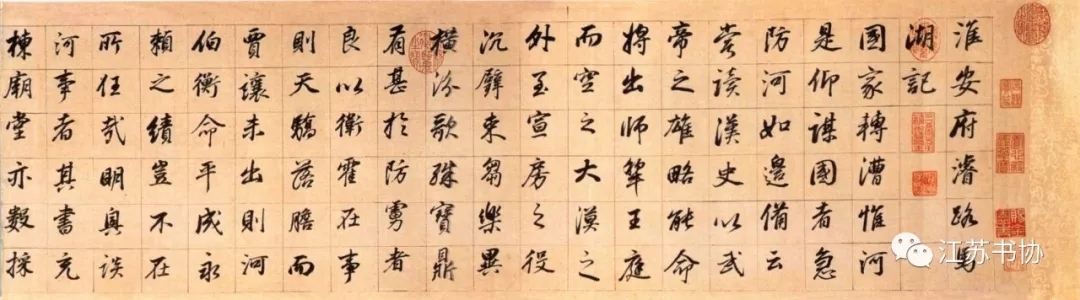 淮安府濬路馬
湖記
國家轉漕惟河
是仰謀國者急
防河如邊備云
嘗讀漢史以武
帝之雄略能命
將出師犂王庭
而空之大漠之
外至宣房之役
沉璧来蒭樂異
橫汾歌殊寶鼎
有甚於防雩者
良以衛霍在事
則天驕落膽而
賈讓未出則河
伯衡命平成永
賴之績豈不在
所任哉明興談
河事者其書充
棟廟堂亦數採
江苏书协